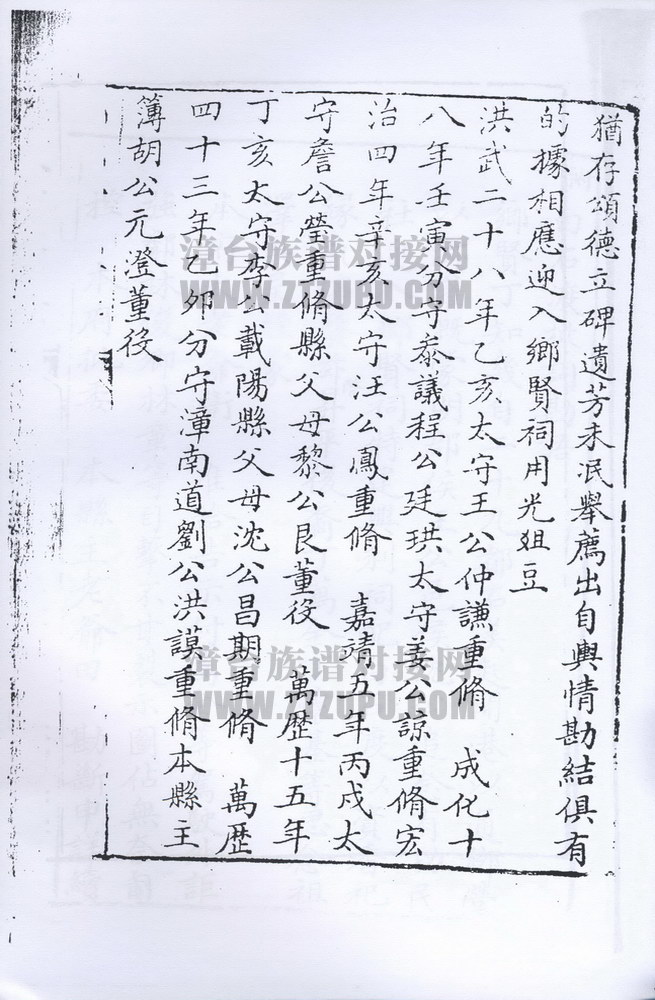 猶存頌德立碑遺芳未泯舉薦出自輿情勘結俱有
的據相應迎入鄉賢祠用光俎豆
洪武二十八年乙亥太守王公仲謙重脩　成化十
八年壬寅分守叅議程公廷珙太守姜公諒重脩宏
治四年辛亥太守汪公鳳重脩　嘉靖五年丙戌太
守詹公瑩重脩縣父母黎公艮董役　萬歷十五年
丁亥太守李公載陽縣父母沈公昌期重脩　萬歷
四十三年乙夘分守漳南道劉公洪謨重脩本縣主
簿胡公元澄董役
漳台族谱对接网
WWW.ZTZUPU.COM
漳台族谱对接网
WWW.ZTZUPU.COM